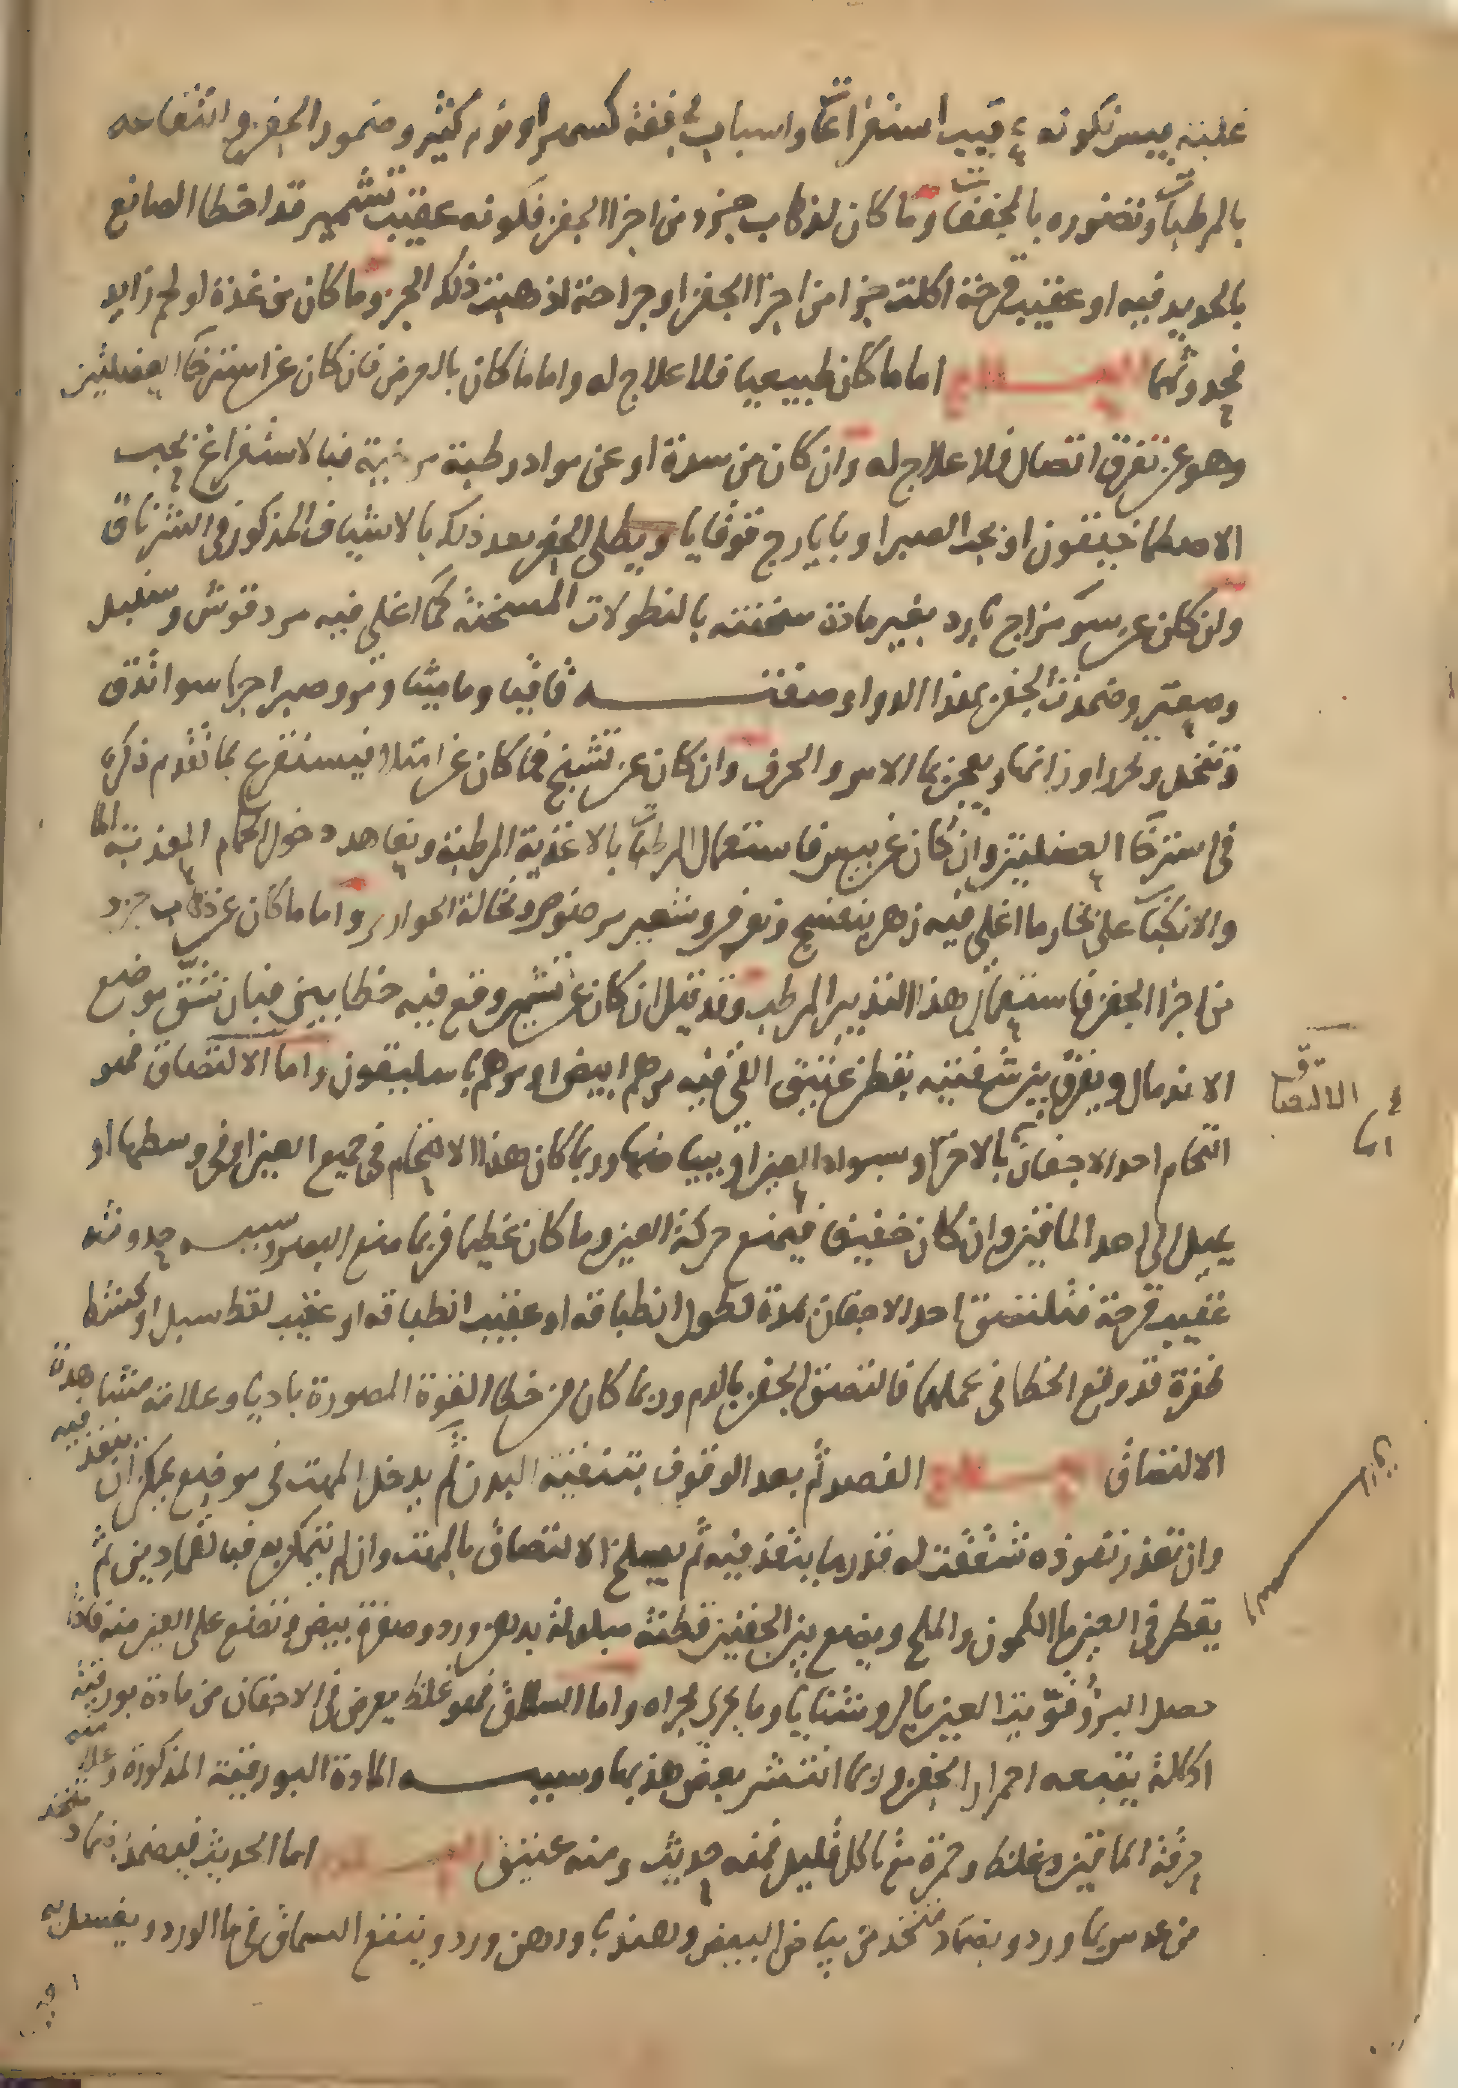 غلبة يبس فكونه عقيب استفراغات واسباب مجففة كسهر او نوم كثير وضمور الجفن وانتفاعه
بالمرطبات وتضرره بالمجففات وما كان لذهاب جزء من اجزا الجفن فكونه عقيب تشمير قد اخطا الصانع
بالحديد فيه او عقيب قرحة اكلت جزا من اجزا الجفن او جراحة اذهبت ذلك الجز وما كان من غدة او لحم زايد
فحدوثهما العلاج اما ما كان طبيعيا فلا علاج له واما ما كان بالعرض فان كان عن استرخا العضلتين
وهو عن تفرق اتصال فلا علاج له وان كان من سدة او عن مواد رطبة مرخية فبالاستفراغ بحب
الاصطماخيقون او بحب الصبر او بايارج قوقايا ويطلى الجفن بعد ذلك بالاشياف المذكور في الشرناق
وان كان عن سو مزاج بارد بغير مادة سخنته بالنطولات المسخنة كما اغلي فيه مردقوش وسنبل
وصعتر وضمدت الجفن بهذا الدوا وصفته قاقيا وماميثا ومر وصبر اجزا سوا تدق
وتنخل وتحرر اوزانها ويعجن بما الاس والحرف وان كان عن تشنج فما كان عن امتلا فيستفرغ بما تقدم ذكره
في استرخا العضلتين وان كان عن يبس فاستعمال المرطبات بالاغذية المرطبة وتعاهد دخول الحمام العذبة الما
والانكباب على بخار ما اغلي فيه زهر بنفسج ونوفر وشعير مرضوض ونخالة الحوارى واما ما كان عن ذهاب جزء
من اجزا الجفن فاستعمال هذا التدبير المرطب وقد قيل ان كان عن تشمير وقع فيه خطا بين فبان تشق موضع
الاندمال ويفرق بين شفتيه بقطن عتيق القي فيه مرهم ابيض او مرهم باسليقون واما الالتصاق فهو
التحام احد الاجفان بالاخر او بسواد العين او ببياضها وربما كان هذا الالتحام في جميع العين او في وسطها او
يميل الى احد الماقين وان كان خفيفا فيمنع حركة العين وما كان عظيما فربما منع البصر وسببه حدوثه
عقيب قرحة فيلتصق احد الاجفان بمدة لطول انطباقه او عقيب انطباقه او عقيب لقط سبل او كشط
ظفرة قد وقع الخطا في عملهما فالتصق الجفن بالدم وربما كان من خطا القوة المصورة باديا وعلامته مشاهدة
الالتصاق العلاج الفصد ثم بعد الوثوق بتنقية البدن ثم يدخل المهت في موضع يمكن ان ينفذ فيه
وان تعذر نفوذه شققت له قدر ما ينفذ فيه ثم يسلخ الالتصاق بالمهت وان لم يتمكن مع فبالقمادين ثم
يقطر في العين ما الكمون والملح ويضع بين الجفنين قطنة مبلولة بدهن ورد وصفرة بيض وتضع على العين منه فاذا
حصل البرؤ قويت العين بالروشنايا وما يجري مجراه واما السلاق فهو غلظ يعرض في الاجفان من مادة بورقية
اكالة يتبعه احمرار الجفن وربما انتشر بعض هذبها وسببه المادة البورقية المذكورة وعلامته
حرقة الماقين وغلظ وحمرة مع تاكل قليل فمنه حديث ومنه عتيق العلاج اما الحديث فيضمد بضماد متخذ
من عدس بما ورد وبضماد متخذ من بياض البيض وهندبا ودهن ورد وينقع السماق في ما الورد ويغسل به
الالتصاق
اما